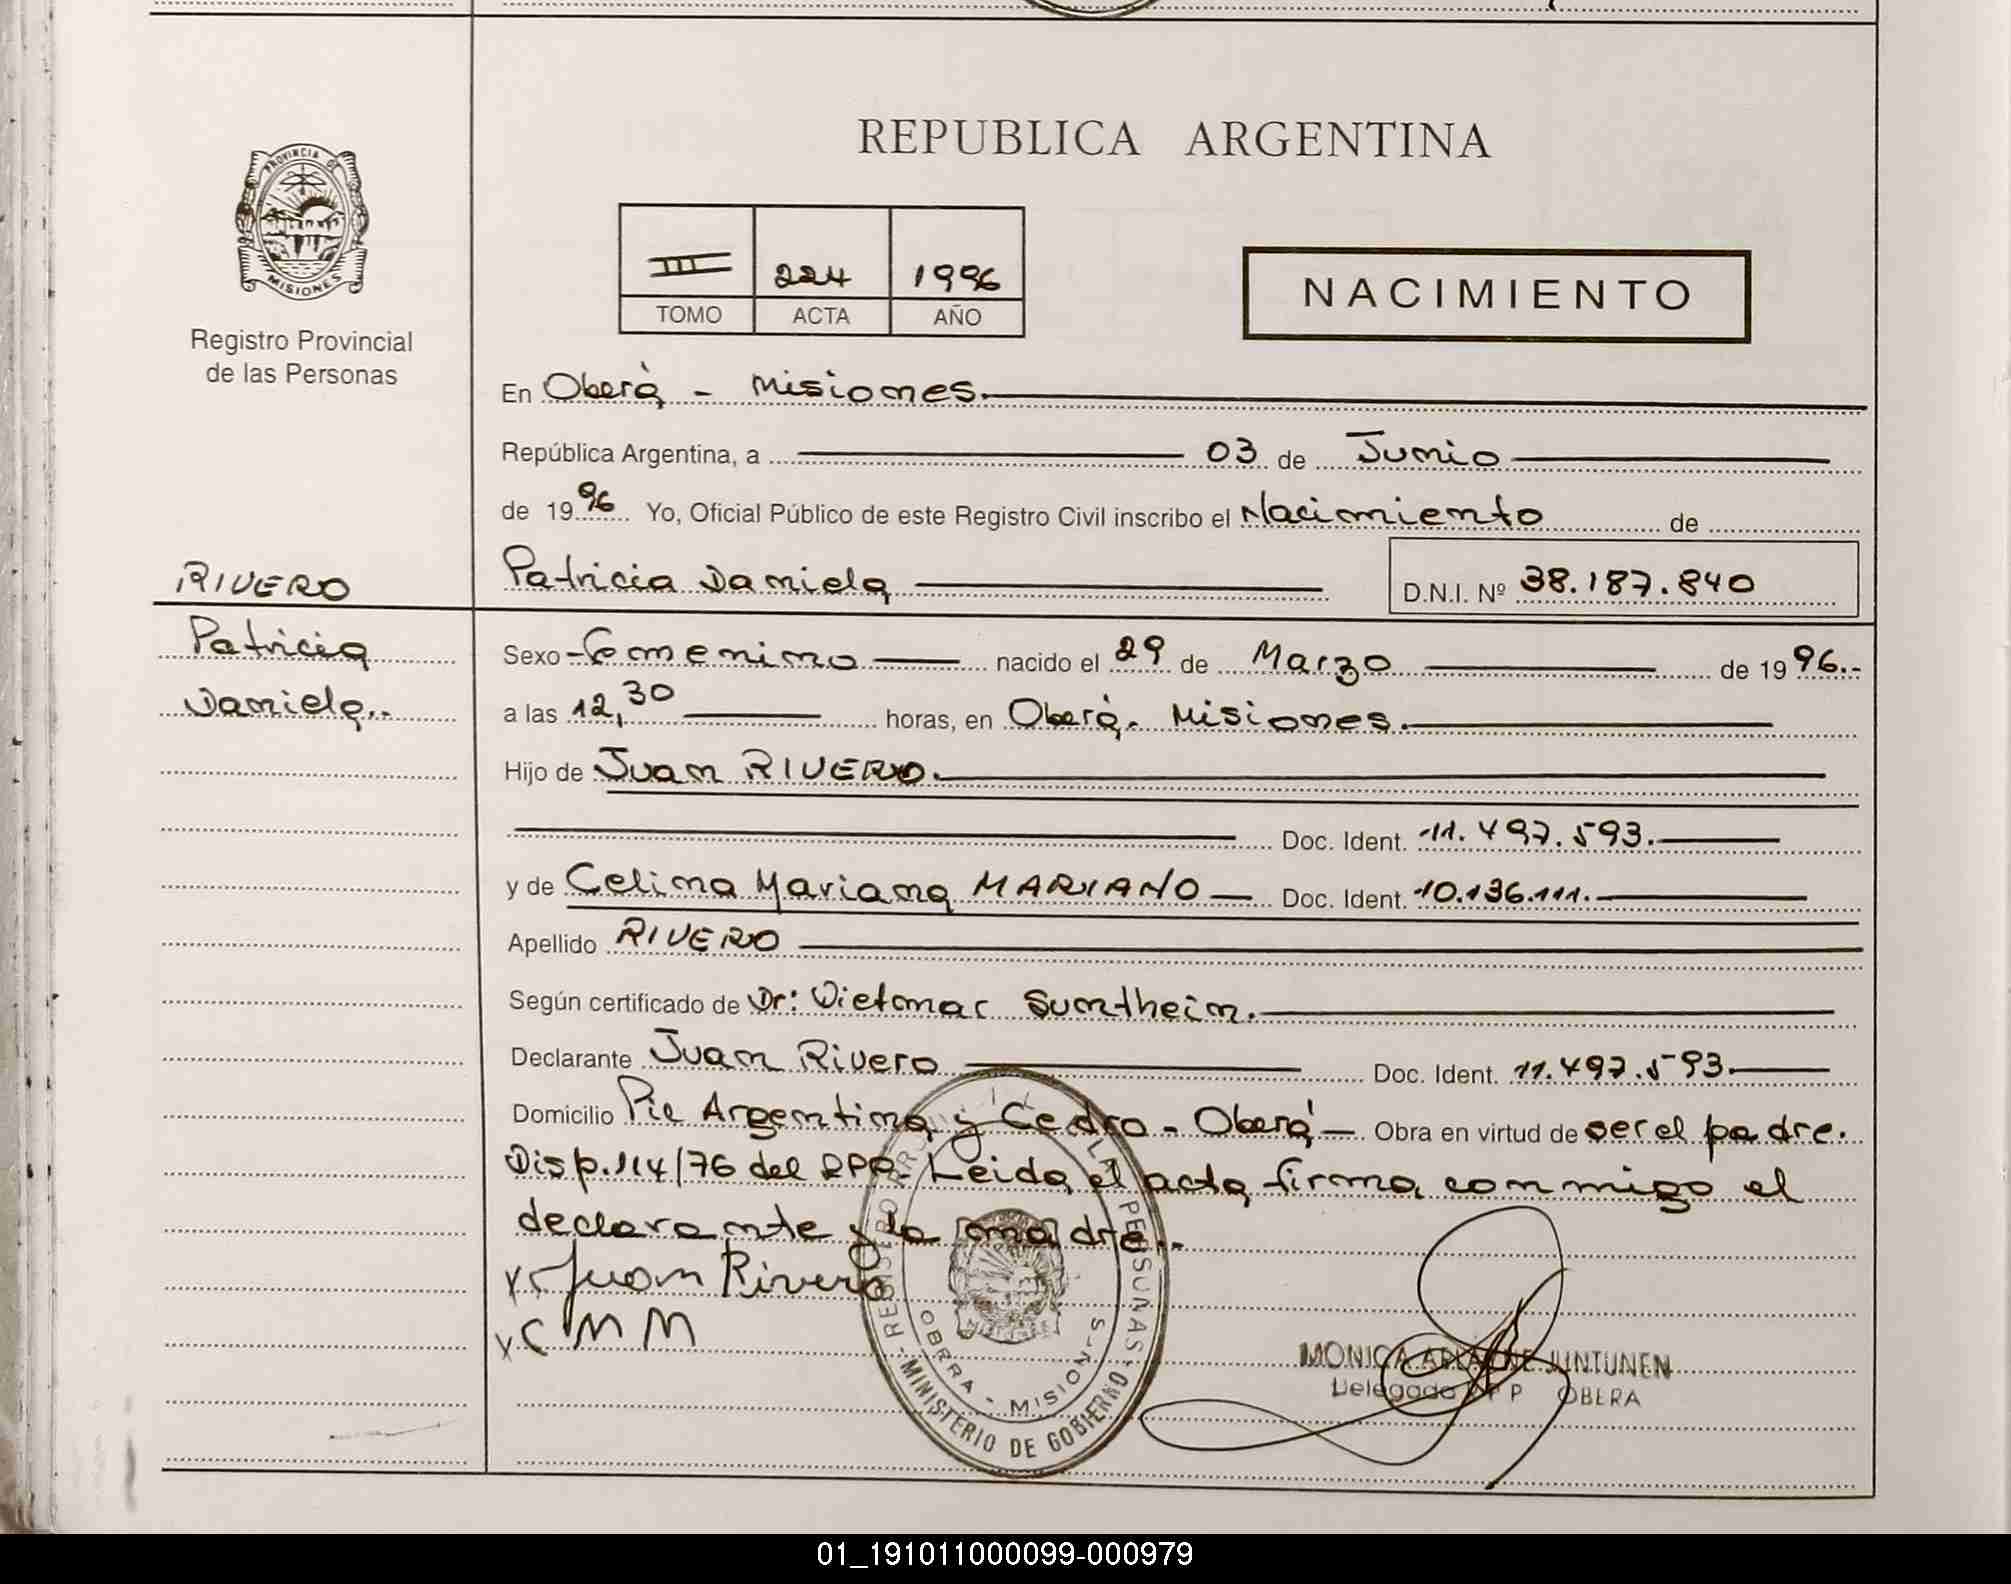 REPUBLICA ARGENTINA
PROVINCIA DE
MISIONES
Registro Provincial
de las Personas
III 224 1996
TOMO ACTA AÑO
NACIMIENTO
En Oberá - Misiones.
República Argentina, a 03 de Junio
de 1996 Yo, Oficial Público de este Registro Civil inscribo el Nacimiento de
RIVERO
Patricia Daniela
D.N.I. Nº 38.187.840
Patricia
Daniela..
Sexo Femenino nacido el 29 de Marzo de 1996.-
a las 12,30 horas, en Oberá. Misiones.
Hijo de Juan RIVERO.
Doc. Ident. 11.497.593.
y de Celina Mariana MARIANO Doc. Ident. 10.136.111.
Apellido RIVERO
Según certificado de Dr: Dietmar Sumtheim.
Declarante Juan Rivero Doc. Ident. 11.497.593.
Domicilio Pie Argentina y Cedro - Oberá - Obra en virtud de ser el padre.
Disp. 114/76 del RPP. Leida el acta firma conmigo el
declarante y la madre..
x Juan Rivero
x C M M
REGISTRO PROVINCIAL DE LAS PERSONAS
OBERA - MISIONES
MINISTERIO DE GOBIERNO
MONICA ARIADNE JUNTUNEN
Delegada R P P OBERA
01_191011000099-000979